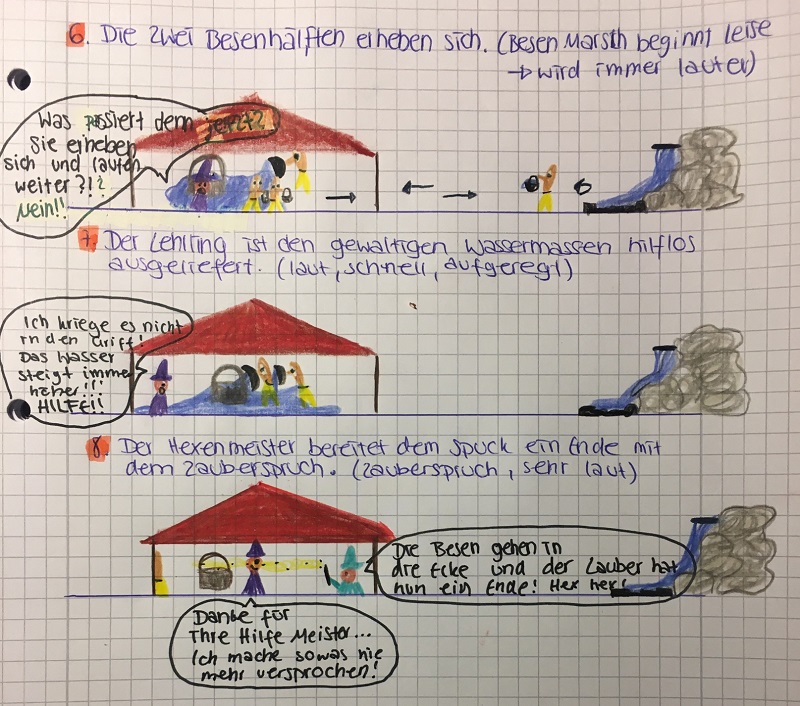 6. Die zwei Besenhälften erheben sich. (Besen Marsch beginnt leise
→ wird immer lauter)
Was passiert denn jetzt?
Sie erheben
sich und laufen
weiter?!?
Nein!!
7. Der Lehrling ist den gewaltigen Wassermassen hilflos
ausgeliefert. (laut, schnell, aufgeregt)
Ich kriege es nicht
in den Griff!
Das Wasser
steigt imme
höher!!!
HILFE!!
8. Der Hexenmeister bereitet dem Spuck ein Ende mit
dem Zauberspruch. (Zauberspruch, sehr laut)
Die Besen gehen in
die Ecke und der Zauber hat
nun ein Ende! Hex hex!
Danke für
Ihre Hilfe Meister...
Ich mache sowas nie
mehr versprochen!